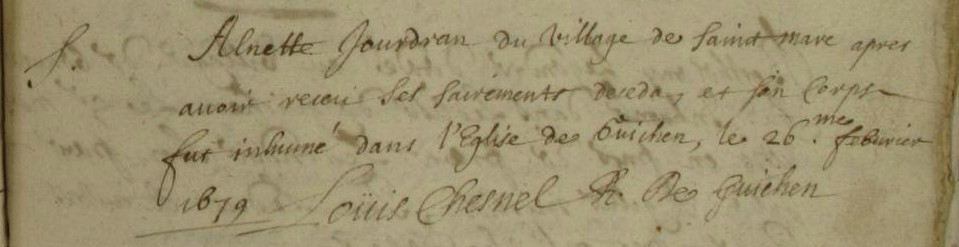 S. Alnette Jourdran du village de sainct marc apres
avoir receu ses sacrements deceda, et son Corps
fut inhumé dans l'Eglise de Guichen, le 26.me febvrier
1679 Loüis Chesnel R. De Guichen